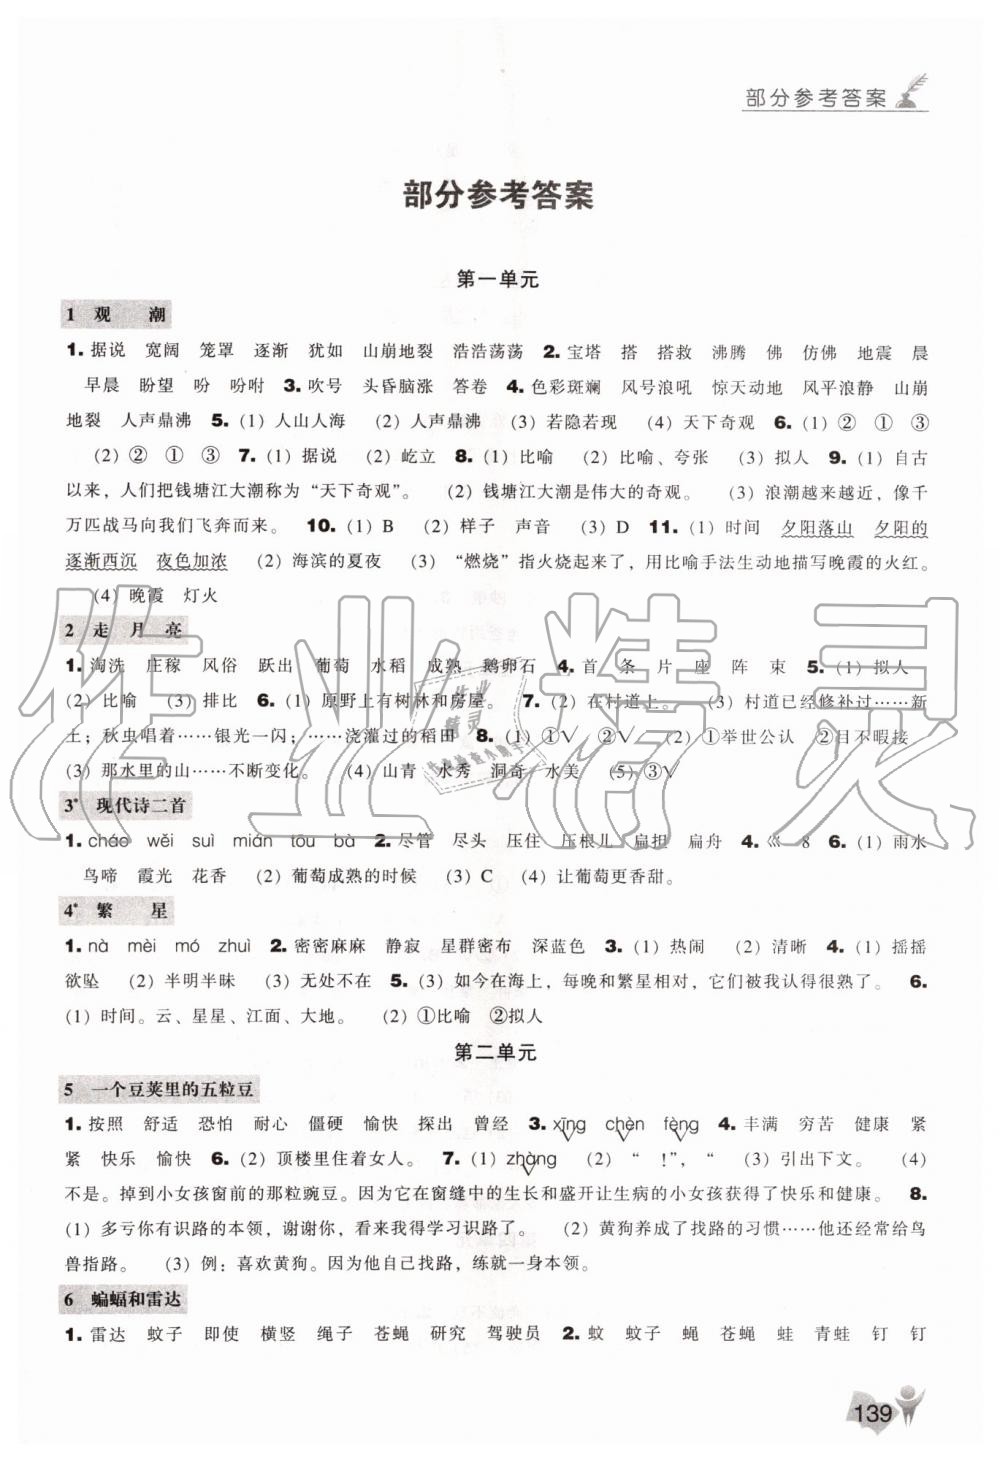 部分参考答案
部分参考答案
第一单元
1 观 潮
1. 据说 宽阔 笼罩 逐渐 犹如 山崩地裂 浩浩荡荡 2. 宝塔 搭 搭救 沸腾 佛 仿佛 地震 晨
早晨 盼望 吩 吩咐 3. 吹号 头昏脑涨 答卷 4. 色彩斑斓 风号浪吼 惊天动地 风平浪静 山崩
地裂 人声鼎沸 5. (1) 人山人海 (2) 人声鼎沸 (3) 若隐若现 (4) 天下奇观 6. (1) ② ① ③
(2) ② ① ③ 7. (1) 据说 (2) 屹立 8. (1) 比喻 (2) 比喻、夸张 (3) 拟人 9. (1) 自古
以来，人们把钱塘江大潮称为“天下奇观”。 (2) 钱塘江大潮是伟大的奇观。 (3) 浪潮越来越近，像千
万匹战马向我们飞奔而来。 10. (1) B (2) 样子 声音 (3) D 11. (1) 时间 夕阳落山 夕阳的
逐渐西沉 夜色加浓 (2) 海滨的夏夜 (3) “燃烧”指火烧起来了，用比喻手法生动地描写晚霞的火红。
(4) 晚霞 灯火
2 走 月 亮
1. 淘洗 庄稼 风俗 跃出 葡萄 水稻 成熟 鹅卵石 4. 首 条 片 座 阵 束 5. (1) 拟人
(2) 比喻 (3) 排比 6. (1) 原野上有树林和房屋。 7. (2) 在村道上。 (3) 村道已经修补过……新
土；秋虫唱着……银光一闪；……浇灌过的稻田 8. (1) ①√ ②√ (2) ①举世公认 ②目不暇接
(3) 那水里的山……不断变化。 (4) 山青 水秀 洞奇 水美 (5) ③√
3* 现代诗二首
1. cháo wěi suì mián tōu bà 2. 尽管 尽头 压住 压根儿 扁担 扁舟 4. 巛 8 6. (1) 雨水
鸟啼 霞光 花香 (2) 葡萄成熟的时候 (3) C (4) 让葡萄更香甜。
4* 繁 星
1. nà mèi mó zhuì 2. 密密麻麻 静寂 星群密布 深蓝色 3. (1) 热闹 (2) 清晰 4. (1) 摇摇
欲坠 (2) 半明半昧 (3) 无处不在 5. (3) 如今在海上，每晚和繁星相对，它们被我认得很熟了。 6.
(1) 时间。云、星星、江面、大地。 (2) ①比喻 ②拟人
第二单元
5 一个豆荚里的五粒豆
1. 按照 舒适 恐怕 耐心 僵硬 愉快 探出 曾经 3. xīng chèn fèng 4. 丰满 穷苦 健康 紧
紧 快乐 愉快 6. (2) 顶楼里住着女人。 7. (1) zhàng (2) “ !”，“ (3) 引出下文。 (4)
不是。掉到小女孩窗前的那粒豌豆。因为它在窗缝中的生长和盛开让生病的小女孩获得了快乐和健康。 8.
(1) 多亏你有识路的本领，谢谢你，看来我得学习识路了。 (2) 黄狗养成了找路的习惯……他还经常给鸟
兽指路。 (3) 例：喜欢黄狗。因为自己找路，练就一身本领。
6 蝙蝠和雷达
1. 雷达 蚊子 即使 横竖 绳子 苍蝇 研究 驾驶员 2. 蚊 蚊子 蝇 苍蝇 蛙 青蛙 钉 钉
139
作业精灵